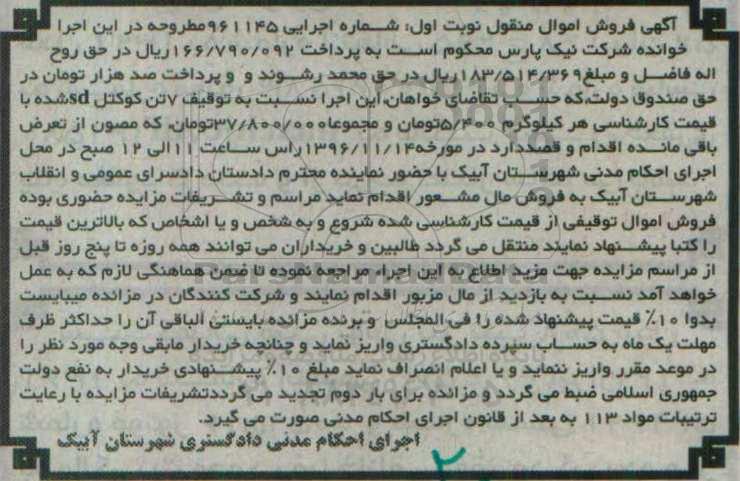 آگهی فروش اموال منقول نوبت اول: شماره اجرایی ۹۶۱۱۴۵مطروحه در این اجرا
خوانده شرکت نیک پارس محکوم است به پرداخت ۱۶۶/۷۹۰/۰۹۲ریال در حق روح
اله فاضل و مبلغ۱۸۳/۵۱۴/۳۶۹ریال در حق محمد رشوند و و پرداخت صد هزار تومان در
حق صندوق دولت،که حسب تقاضای خواهان،این اجرا نسبت به توقیف ۷تن کوکتل sdشده با
قیمت کارشناسی هر کیلوگرم ۵/۴۰۰تومان و مجموعا۳۷/۸۰۰/۰۰۰تومان، که مصون از تعرض
باقی مانده اقدام و قصددارد در مورخه۱۳۹۶/۱۱/۱۴راس ساعت ۱۱الی ۱۲ صبح در محل
اجرای احکام مدنی شهرستان آبیک با حضور نماینده محترم دادستان دادسرای عمومی و انقلاب
شهرستان آبیک به فروش مال مشعور اقدام نماید مراسم و تشریفات مزایده حضوری بوده
فروش اموال توقیفی از قیمت کارشناسی شده شروع و به شخص و یا اشخاص که بالاترین قیمت
را کتبا پیشنهاد نمایند منتقل می گردد طالبین و خریداران می توانند همه روزه تا پنج روز قبل
از مراسم مزایده جهت مزید اطلاع به این اجراء مراجعه نموده تا ضمن هماهنگی لازم که به عمل
خواهد آمد نسبت به بازدید از مال مزبور اقدام نمایند و شرکت کنندگان در مزائده میبایست
بدوا ۱۰٪ قیمت پیشنهاد شده را فی المجلس و برنده مزائده بایستی الباقی آن را حداکثر ظرف
مهلت یک ماه به حساب سپرده دادگستری واریز نماید و چنانچه خریدار مابقی وجه مورد نظر را
در موعد مقرر واریز ننماید و یا اعلام انصراف نماید مبلغ ۱۰٪ پیشنهادی خریدار به نفع دولت
جمهوری اسلامی ضبط می گردد و مزائده برای بار دوم تجدید می گرددتشریفات مزایده با رعایت
ترتیبات مواد ۱۱۳ به بعد از قانون اجرای احکام مدنی صورت می گیرد.
اجرای احکام مدنی دادگستری شهرستان آبیک
۲